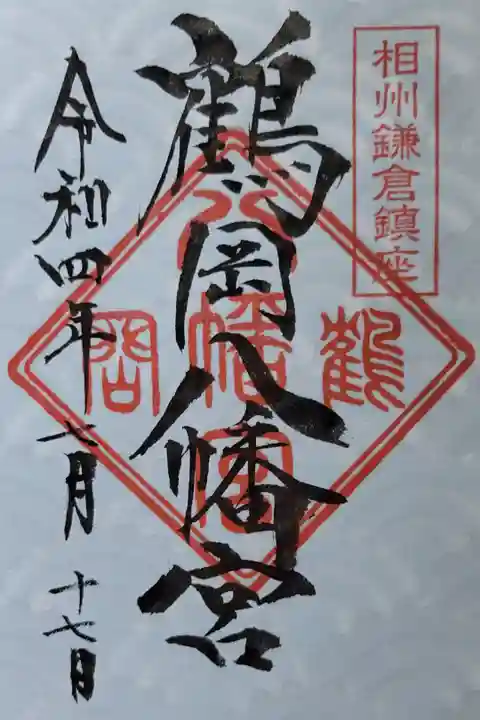 相州鎌倉鎮座
鶴岡八幡宮
鶴
八幡宮
岡
令和四年七月十七日